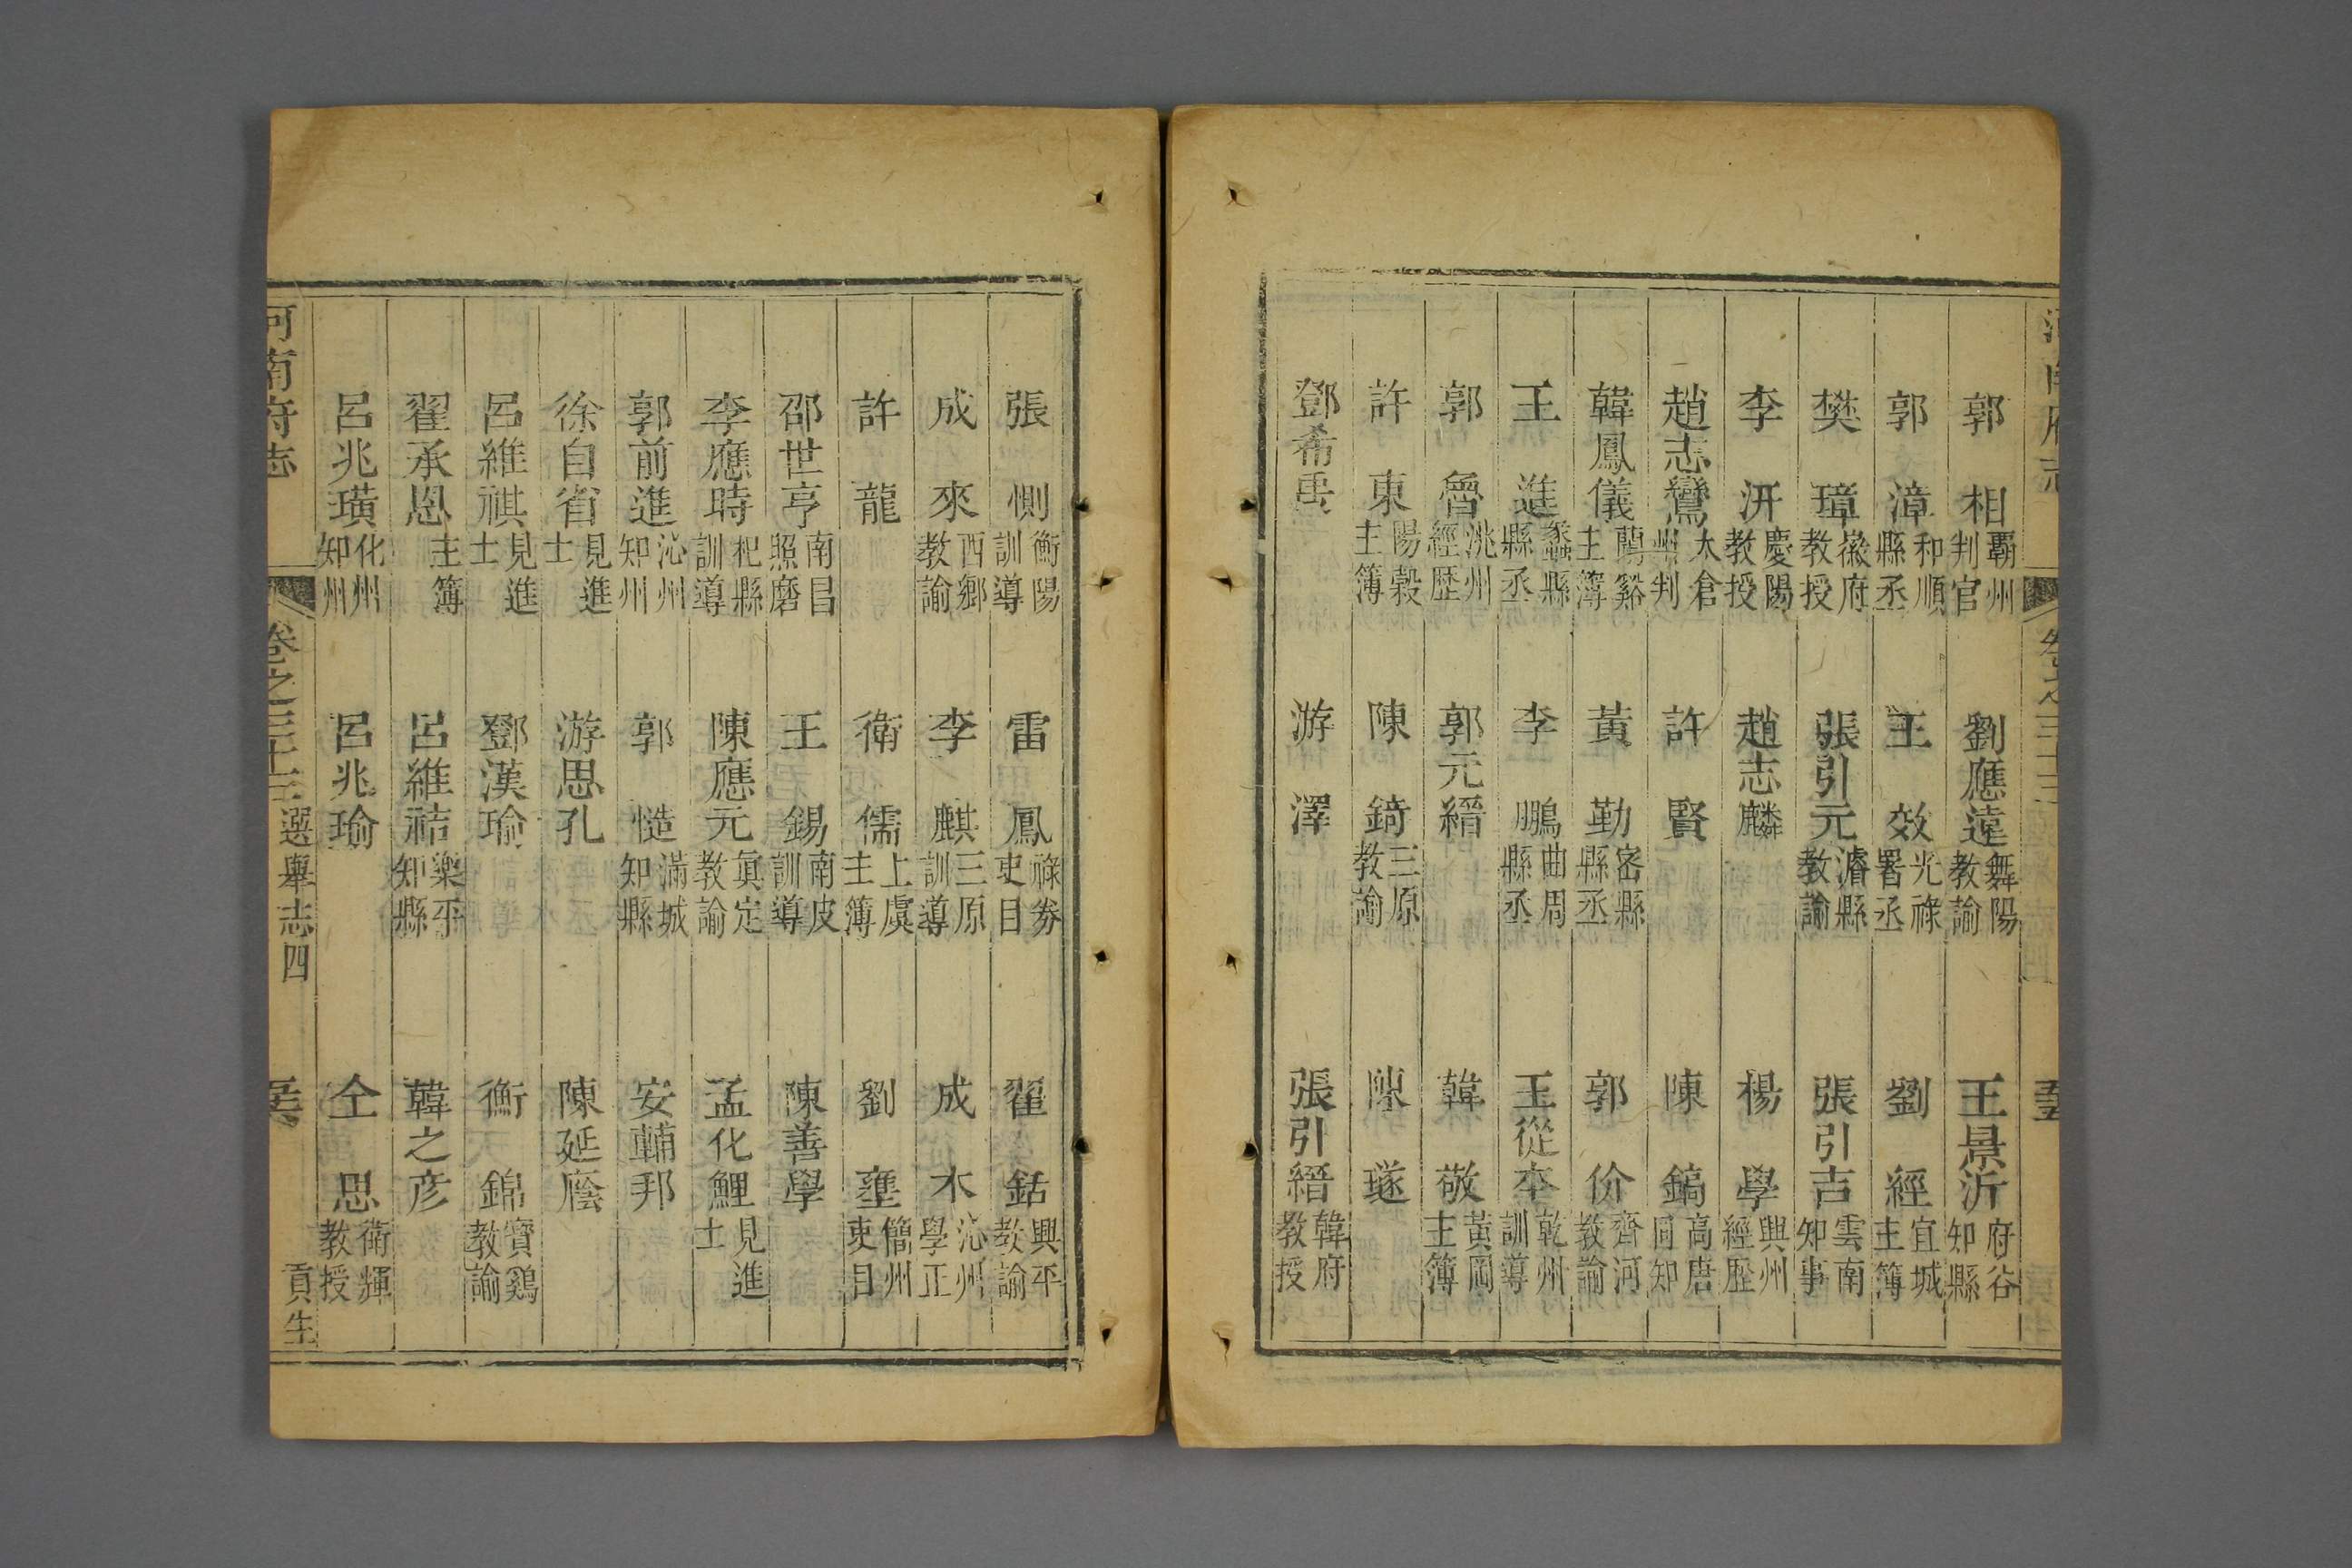 郭相 霸州判官 劉應遠 舞陽教諭 王景沂 府谷知縣
郭漳 和順縣丞 王效 光祿署丞 劉經 宜城主簿
樊璋 徽府教授 張引元 濬縣教諭 張引吉 雲南知事
李汧 慶陽教授 趙志麟 楊學 興州經歷
趙志鸞 太倉州判 許賢 陳鎬 高唐同知
韓鳳儀 蘭谿主簿 黃勤 密縣縣丞 郭价 齊河教諭
王進 蠡縣縣丞 李鵬 曲周縣丞 王從本 乾州訓導
郭魯 洮州經歷 郭元縉 韓敬 黃岡主簿
許東 陽穀主簿 陳錡 三原教諭 陳璲
鄧希禹 游澤 張引縉 韓府教授
張惻 衡陽訓導 雷鳳 祿券吏目 翟銛 興平教諭
成來 西鄉教諭 李麒 三原訓導 成木 沁州學正
許龍 衛儒 上虞主簿 劉壅 簡州吏目
邵世亨 南昌照磨 王錫 南皮訓導 陳善學
李應時 杞縣訓導 陳應元 眞定教諭 孟化鯉 見進士
郭前進 沁州知州 郭慥 滿城知縣 安輔邦
徐自省 見進士 游思孔 陳延廕
呂維祺 見進士 鄧漢瑜 衡錦 寶鷄教諭
翟承恩 主簿 呂維祜 樂平知縣 韓之彥
呂兆璜 化州知州 呂兆瑜 仝思 衛輝教授
河南府志 卷之二十三 選舉志四 貢生